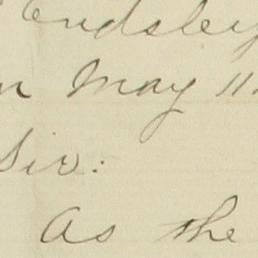 Endsley
n May 11
Sir:
As the